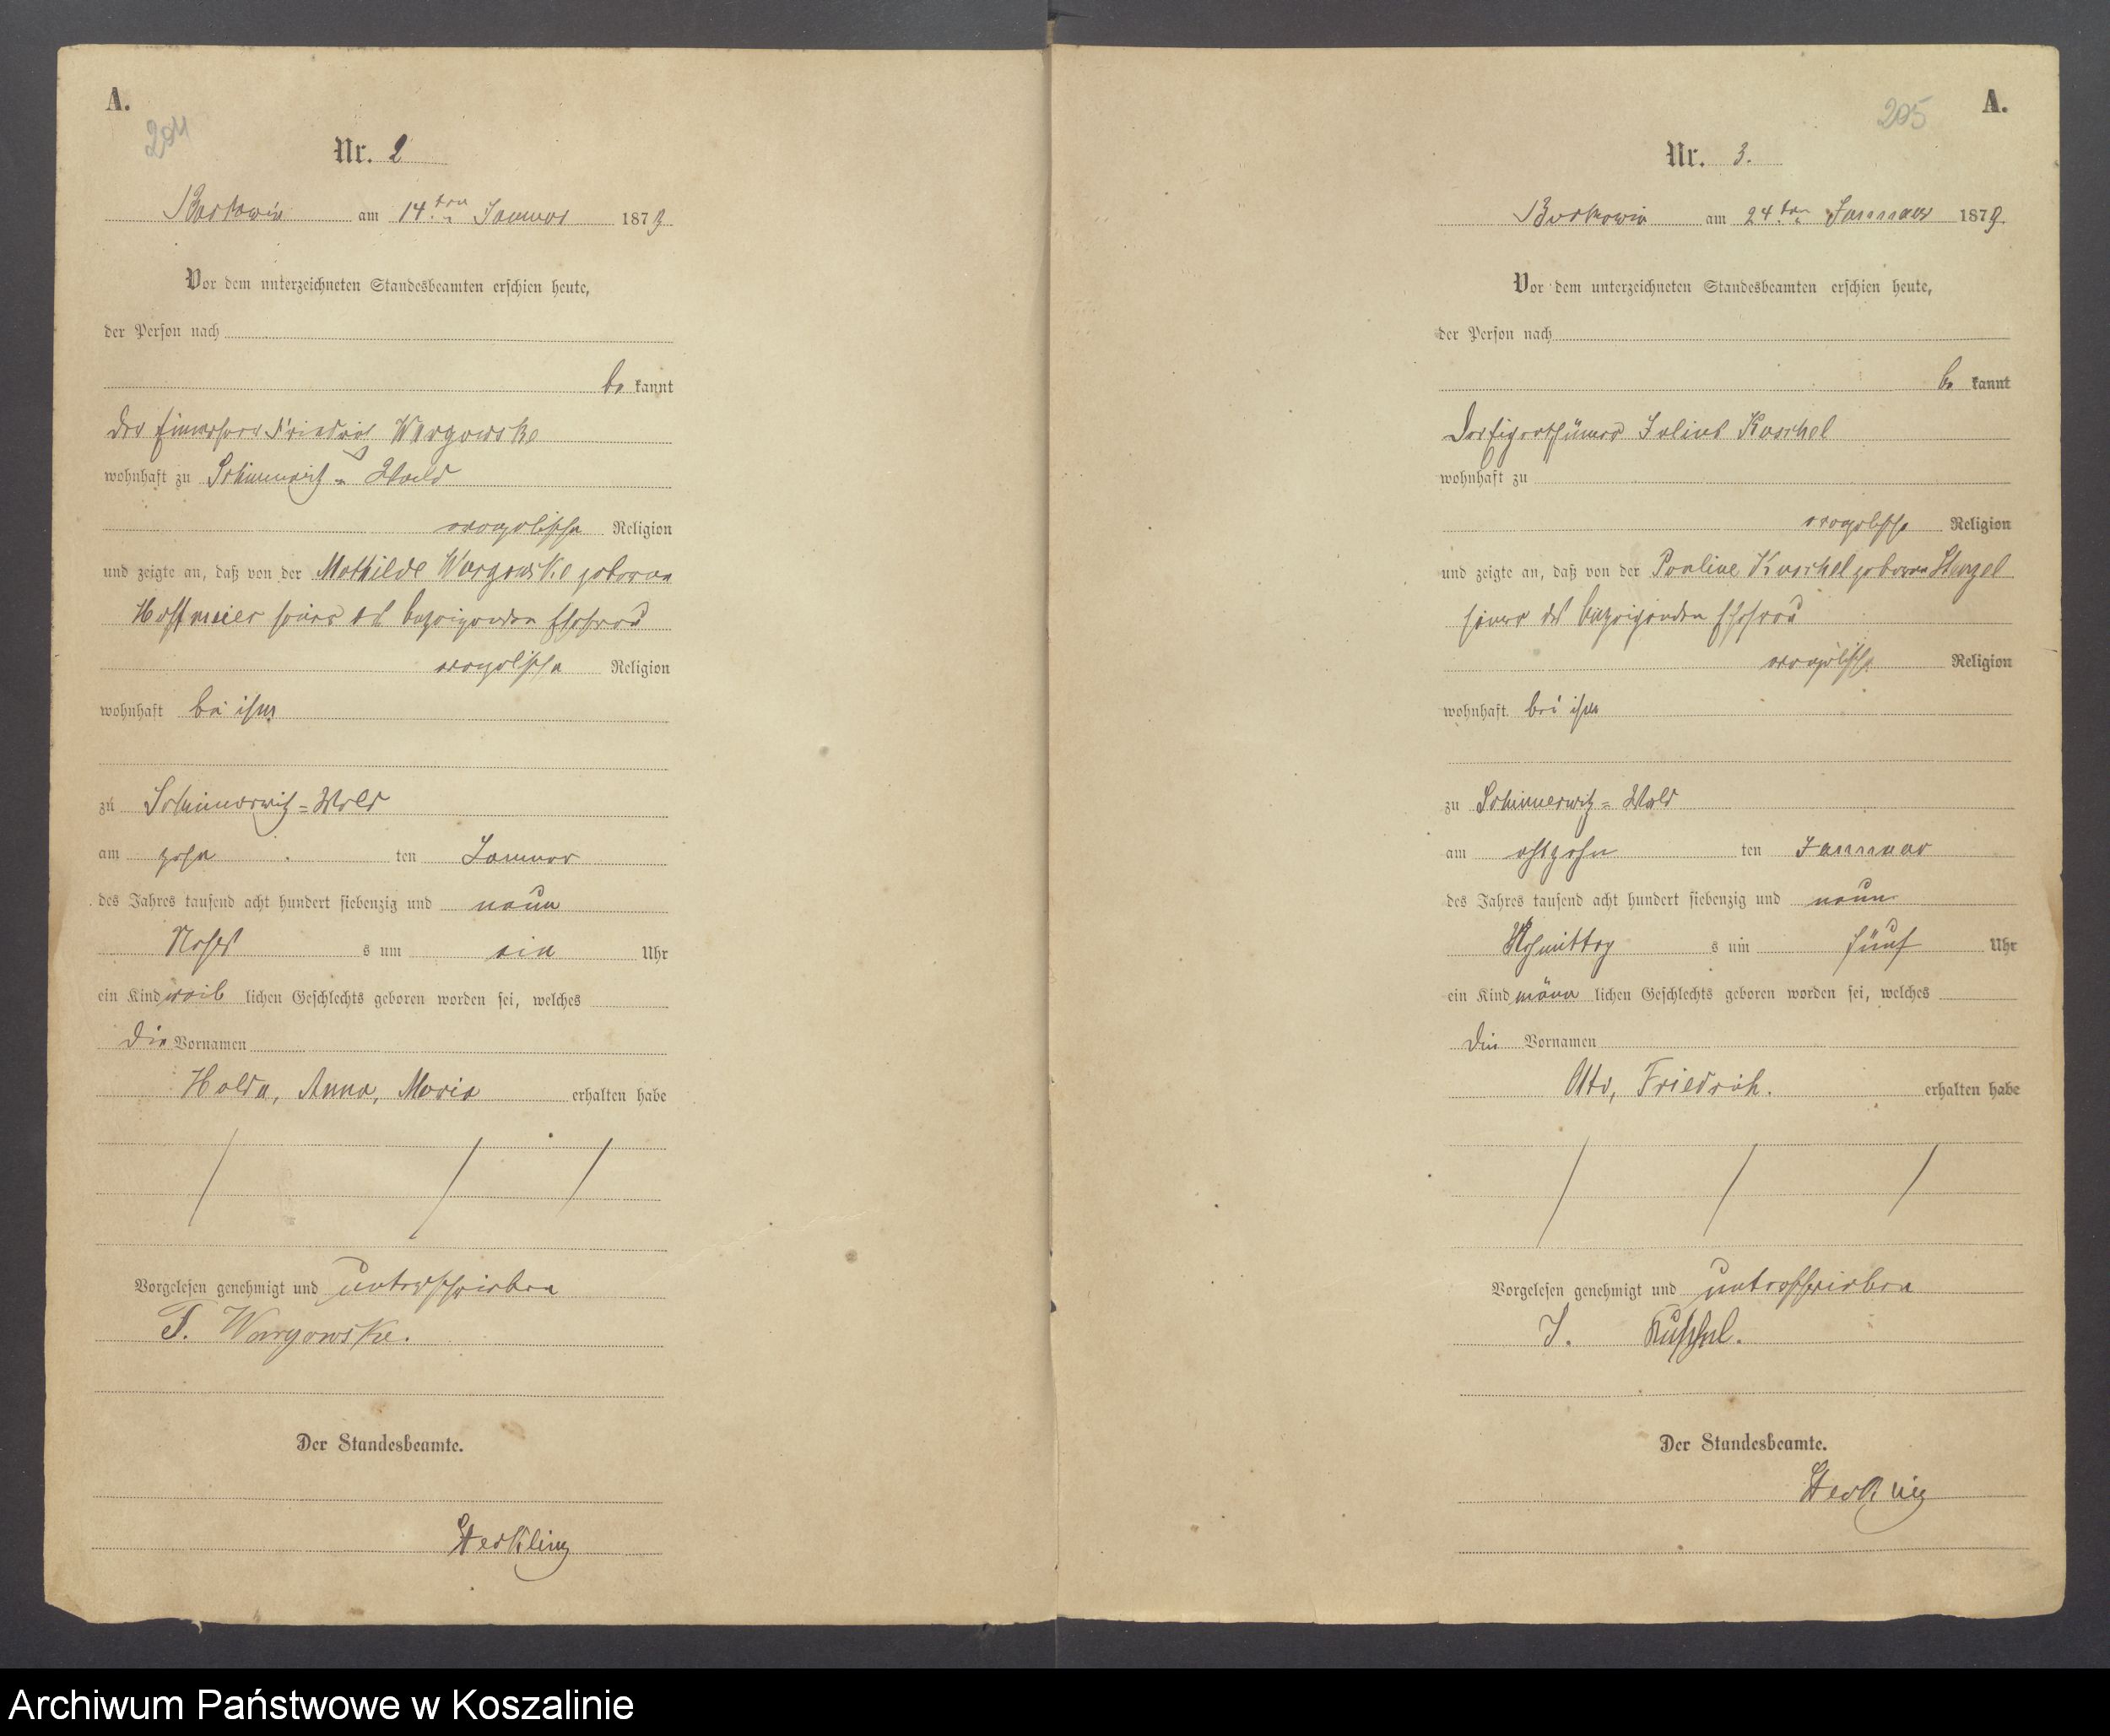 A.
204
Nr. 2
Buckowin am 14ten Januar 1879
Vor dem unterzeichneten Standesbeamten erschien heute,
der Person nach
be kannt
der Einwohner Friedrich Wargowske
wohnhaft zu Schimmerwitz = Wald
evangelische Religion
und zeigte an, daß von der Mathilde Wargowske geboren
Hoffmeier seiner des Anzeigenden Ehefrau
evangelische Religion
wohnhaft bei ihm
zu Schimmerwitz = Wald
am zehn ten Januar
des Jahres tausend acht hundert siebenzig und neun
Nachts s um ein Uhr
ein Kind weib lichen Geschlechts geboren worden sei, welches
die Vornamen
Anna, Maria erhalten habe
Vorgelesen genehmigt und unterschrieben
F. Wargowske.
Der Standesbeamte.
205
A.
Nr. 3.
Buckowin am 24ten Januar 1879
Vor dem unterzeichneten Standesbeamten erschien heute,
der Person nach
be kannt
Der Eigenthümer Julius Kuschel
wohnhaft zu
evangelische Religion
und zeigte an, daß von der Pauline Kuschel geboren Stenzel
seiner des Anzeigenden Ehefrau
evangelische Religion
wohnhaft bei ihm
zu Schimmerwitz = Wald
am achtzehn ten Januar
des Jahres tausend acht hundert siebenzig und neun
Nachmittag s um fünf Uhr
ein Kind männ lichen Geschlechts geboren worden sei, welches
die Vornamen
Otto, Friedrich. erhalten habe
Vorgelesen genehmigt und unterschrieben
J. Kuschel.
Der Standesbeamte.
Archiwum Państwowe w Koszalinie